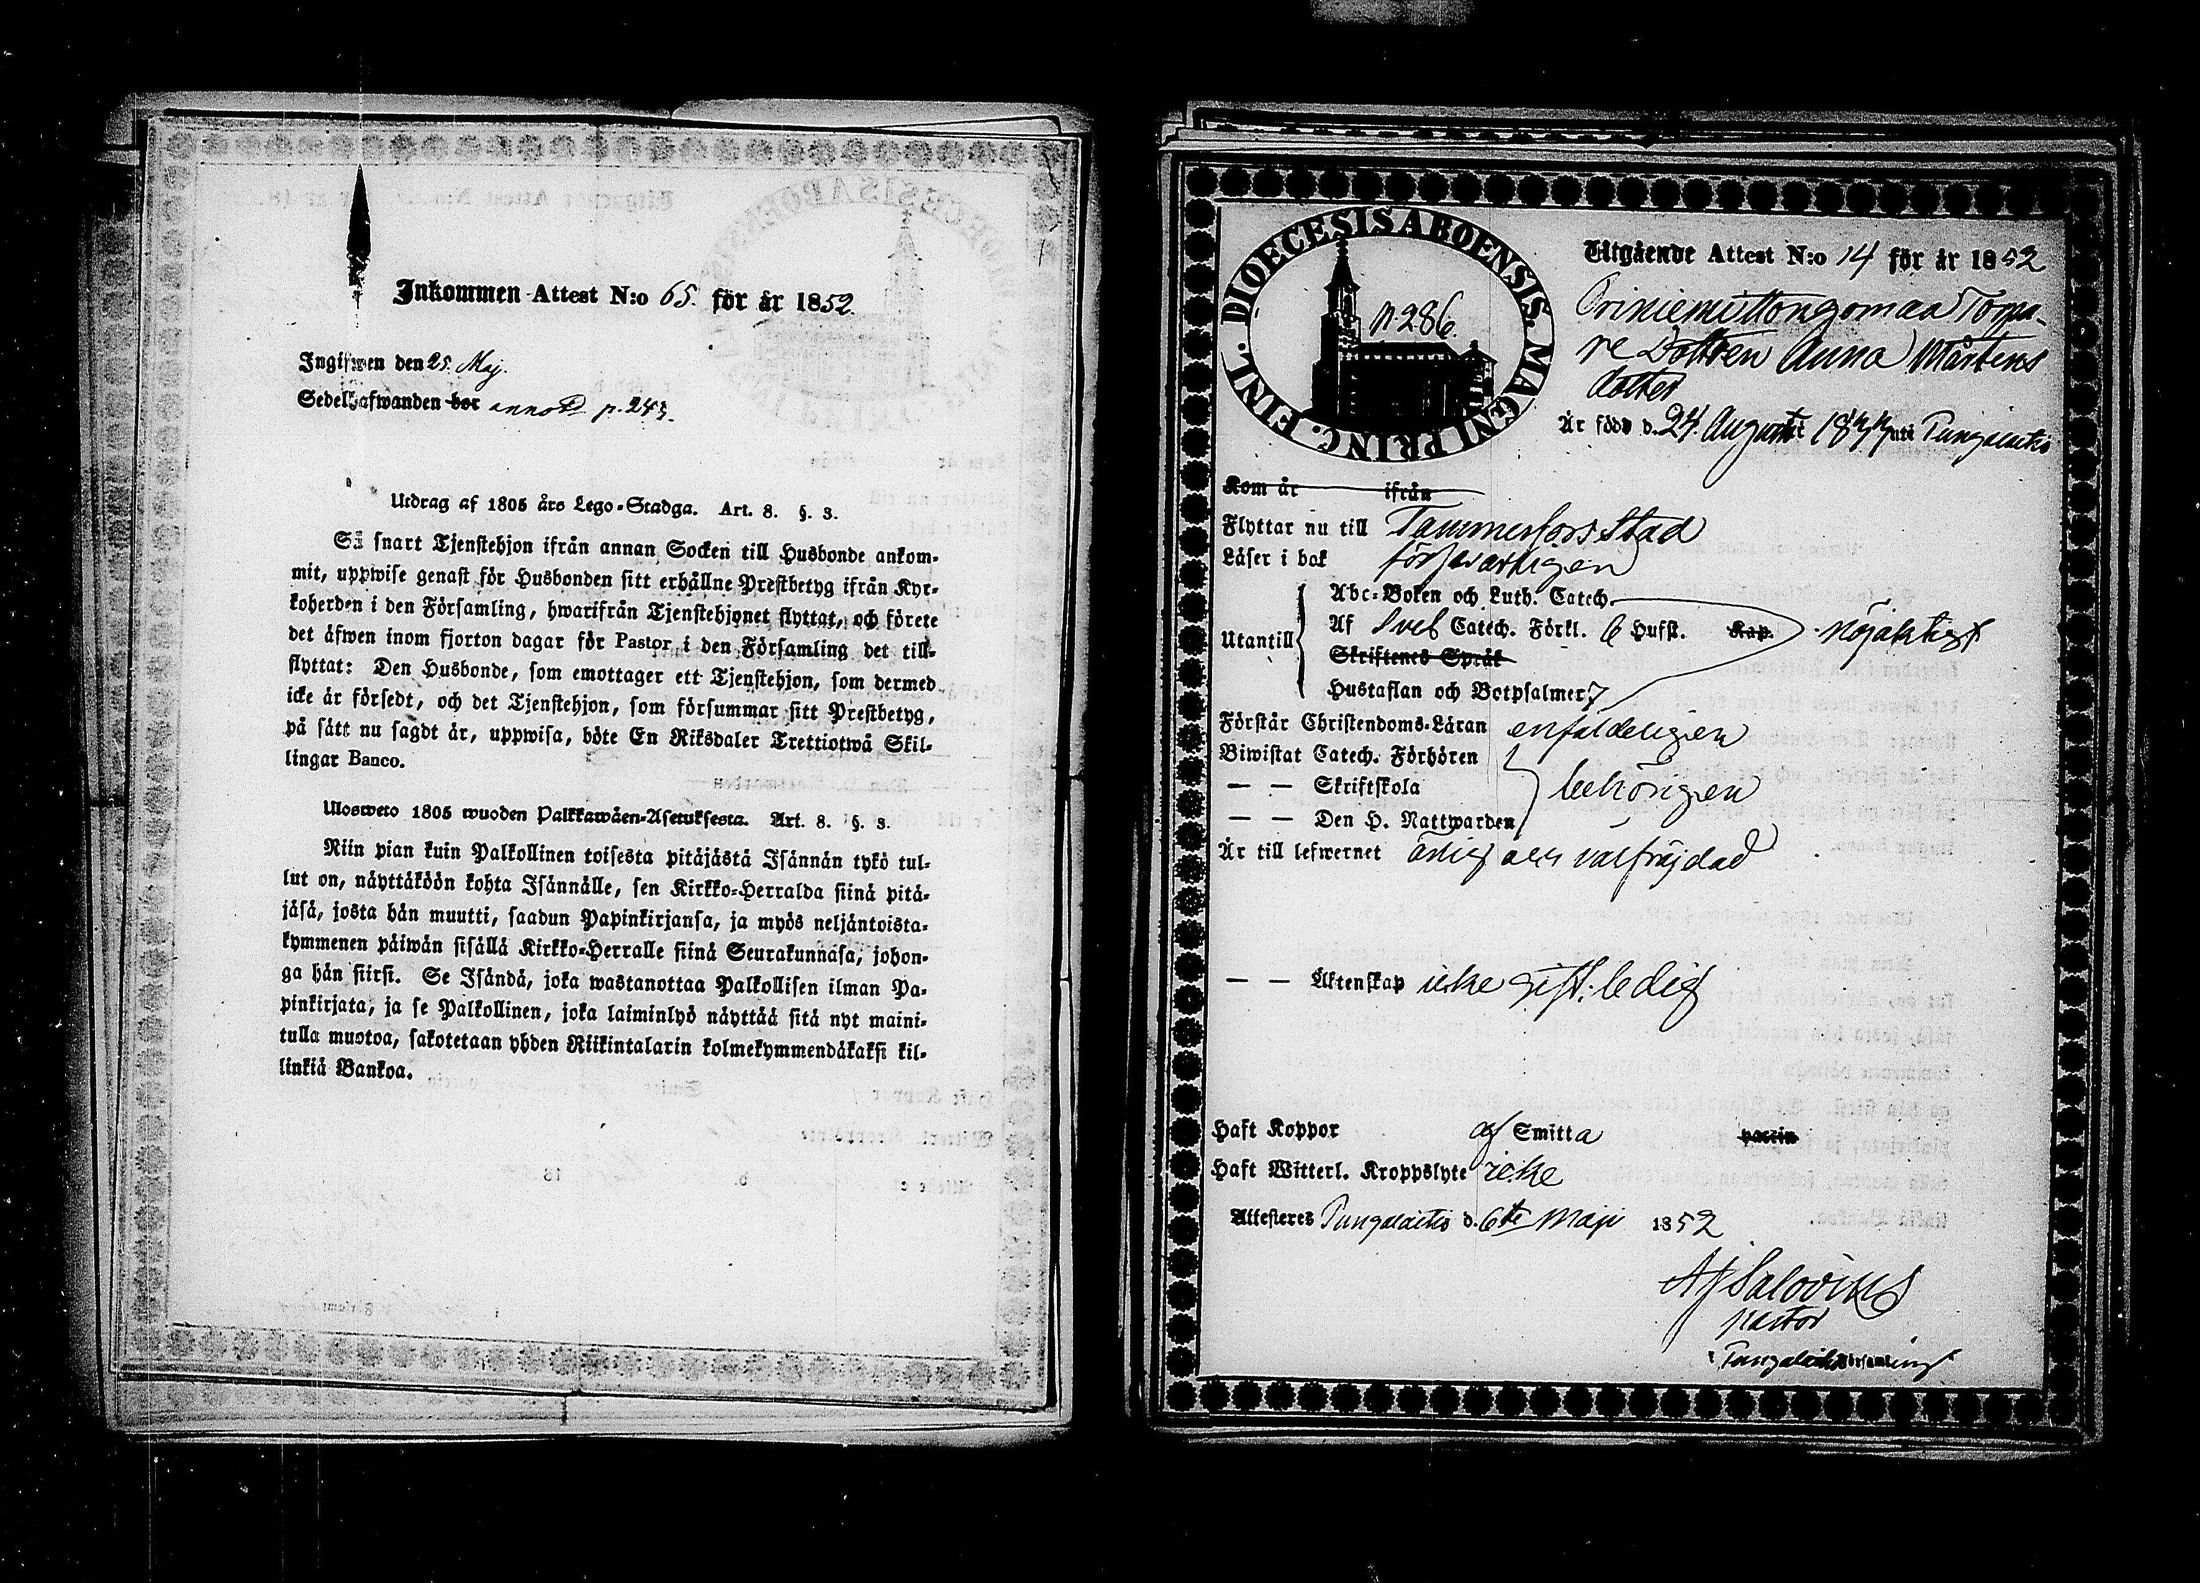 Inkommen Attest N:o 65. för år 1852.
Ingifwen den 25. Maj.
Sedelhafwanden bor annot. p. 243.
Utdrag af 1805 års Lego-Stadga. Art. 8. §. 3.
Så snart Tjenstehjon ifrån annan Socken till Husbonde ankom-
mit, uppwise genast för Husbonden sitt erhållne Prestbetyg ifrån Kyr-
koherden i den Församling, hwarifrån Tjenstehjonet flyttat, och förete
det äfwen inom fjorton dagar för Pastor i den Församling det till-
flyttat: Den Husbonde, som emottager ett Tjenstehjon, som dermed
icke är försedt, och det Tjenstehjon, som försummar sitt Prestbetyg,
på sätt nu sagdt är, uppwisa, böte En Riksdaler Trettiotwå Skil-
lingar Banco.
Ulosweto 1805 wuoden Palkkawäen-Asetuksesta. Art. 8. §. 3.
Niin pian kuin Palkollinen toisesta pitäjästä Isännän tykö tul-
lut on, näyttäköön kohta Isännälle, sen Kirkko-Herralda siinä pitä-
jäsä, josta hän muutti, saadun Papinkirjansa, ja myös neljäntoista-
kymmenen päiwän sisällä Kirkko-Herralle siinä Seurakunnasa, johon-
ga hän siirsi. Se Isändä, joka wastanottaa Palkollisen ilman Pa-
pinkirjata, ja se Palkollinen, joka laiminlyö näyttää sitä nyt maini-
tulla muotoa, sakotetaan yhden Riikintalarin kolmekymmendäkaksi kil-
linkiä Bankoa.
DIOECESIS ABOENSIS. MAGNI PRINC. FINL.
p. 286.
Utgående Attest N:o 14 för år 1852
Torpa-
re Dottren Anna Mårtens
dotter
Är född d. 24. Augusti uti Pungalaitio
Kom år ifrån
Flyttar nu till Tammerfors Stad
Läser i bok försvarligen
Utantill
Abc-Boken och Luth. Catech.
Af Sveb Catech. Förkl. 6 Hufst. Kap. nöjaktigt
Skriftenes Språk
Hustaflan och Botpsalmer 7
Förstår Christendoms-Läran enfaldeligen
Biwistat Catech. Förhören
— — Skriftskola behörigen
— — Den H. Nattwarden
Är till lefwernet ärlig och välfräjdad
— — Äktenskap icke gift. ledig
Haft Koppor af Smitta vaccin
Haft Witterl. Kroppslyte icke
Attesteres Pungalaitio d. 6te Maji 1852
AJ Salovius
pastor
Pungalaitio Församling